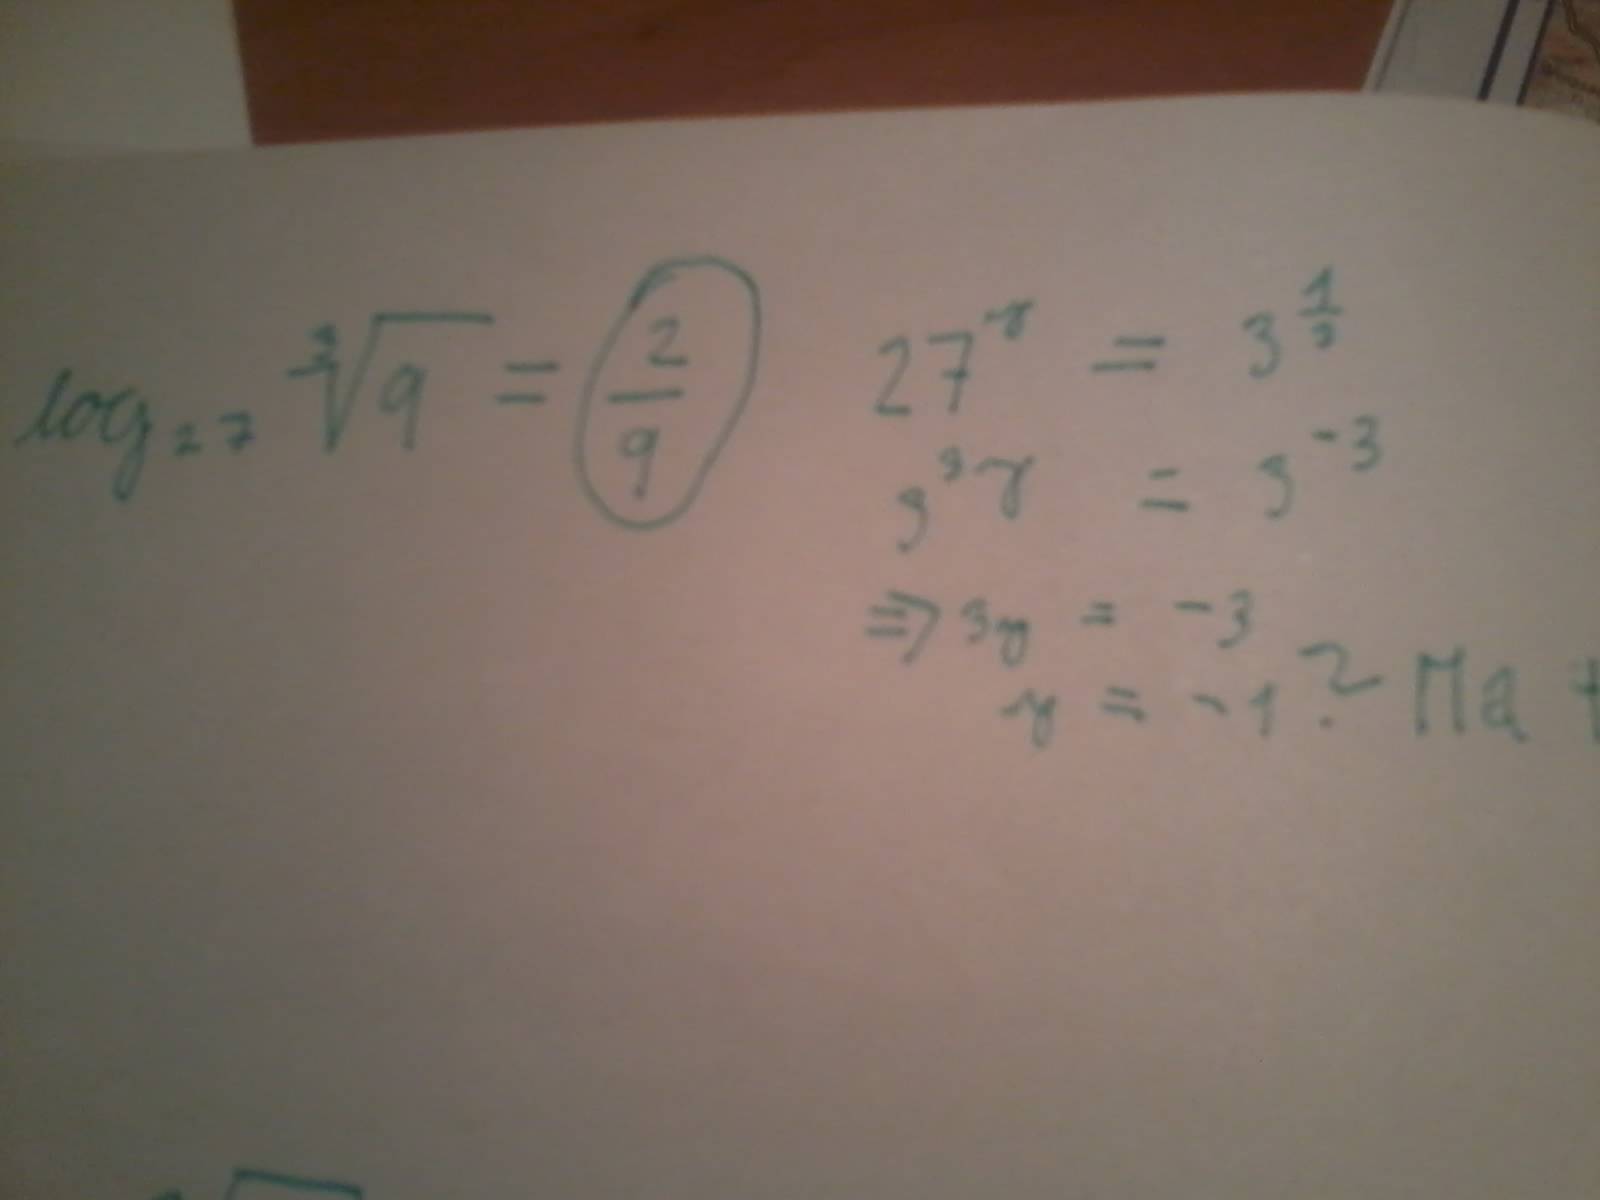 log₂₇ ³√9 = 2/9
27^y = 3^(1/3)
3^(3y) = 3^(-3)
⇒ 3y = -3
y = -1? Ma